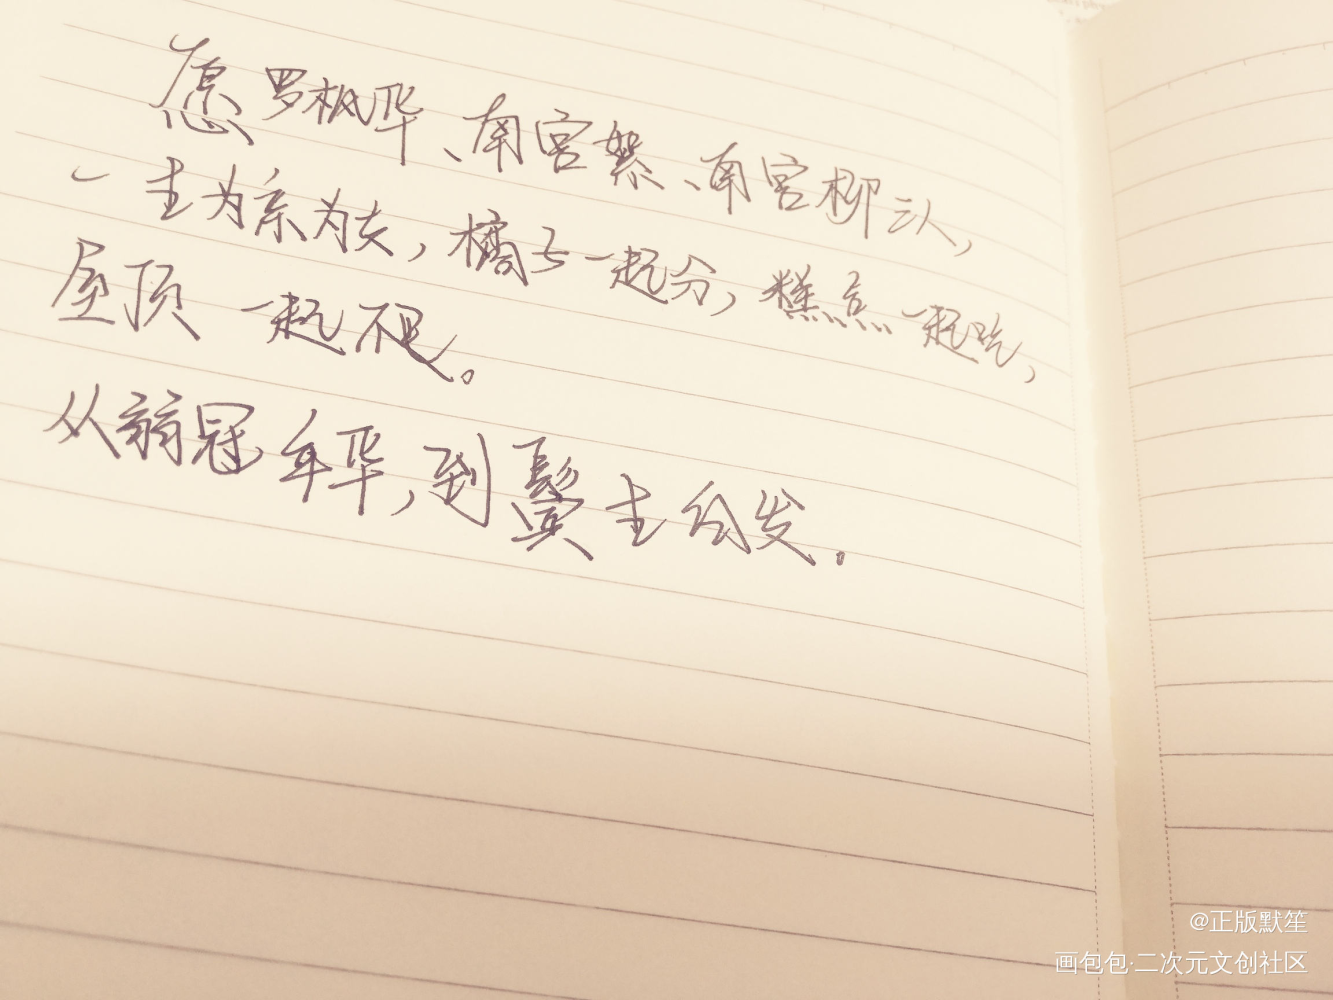 愿罗枫华、南宫絮、南宫柳三人，
一生为亲为友，橘子一起分，糕点一起吃，
屋顶一起爬。
从弱冠年华，到鬓生白发。
@正版默笙
画包包·二次元文创社区